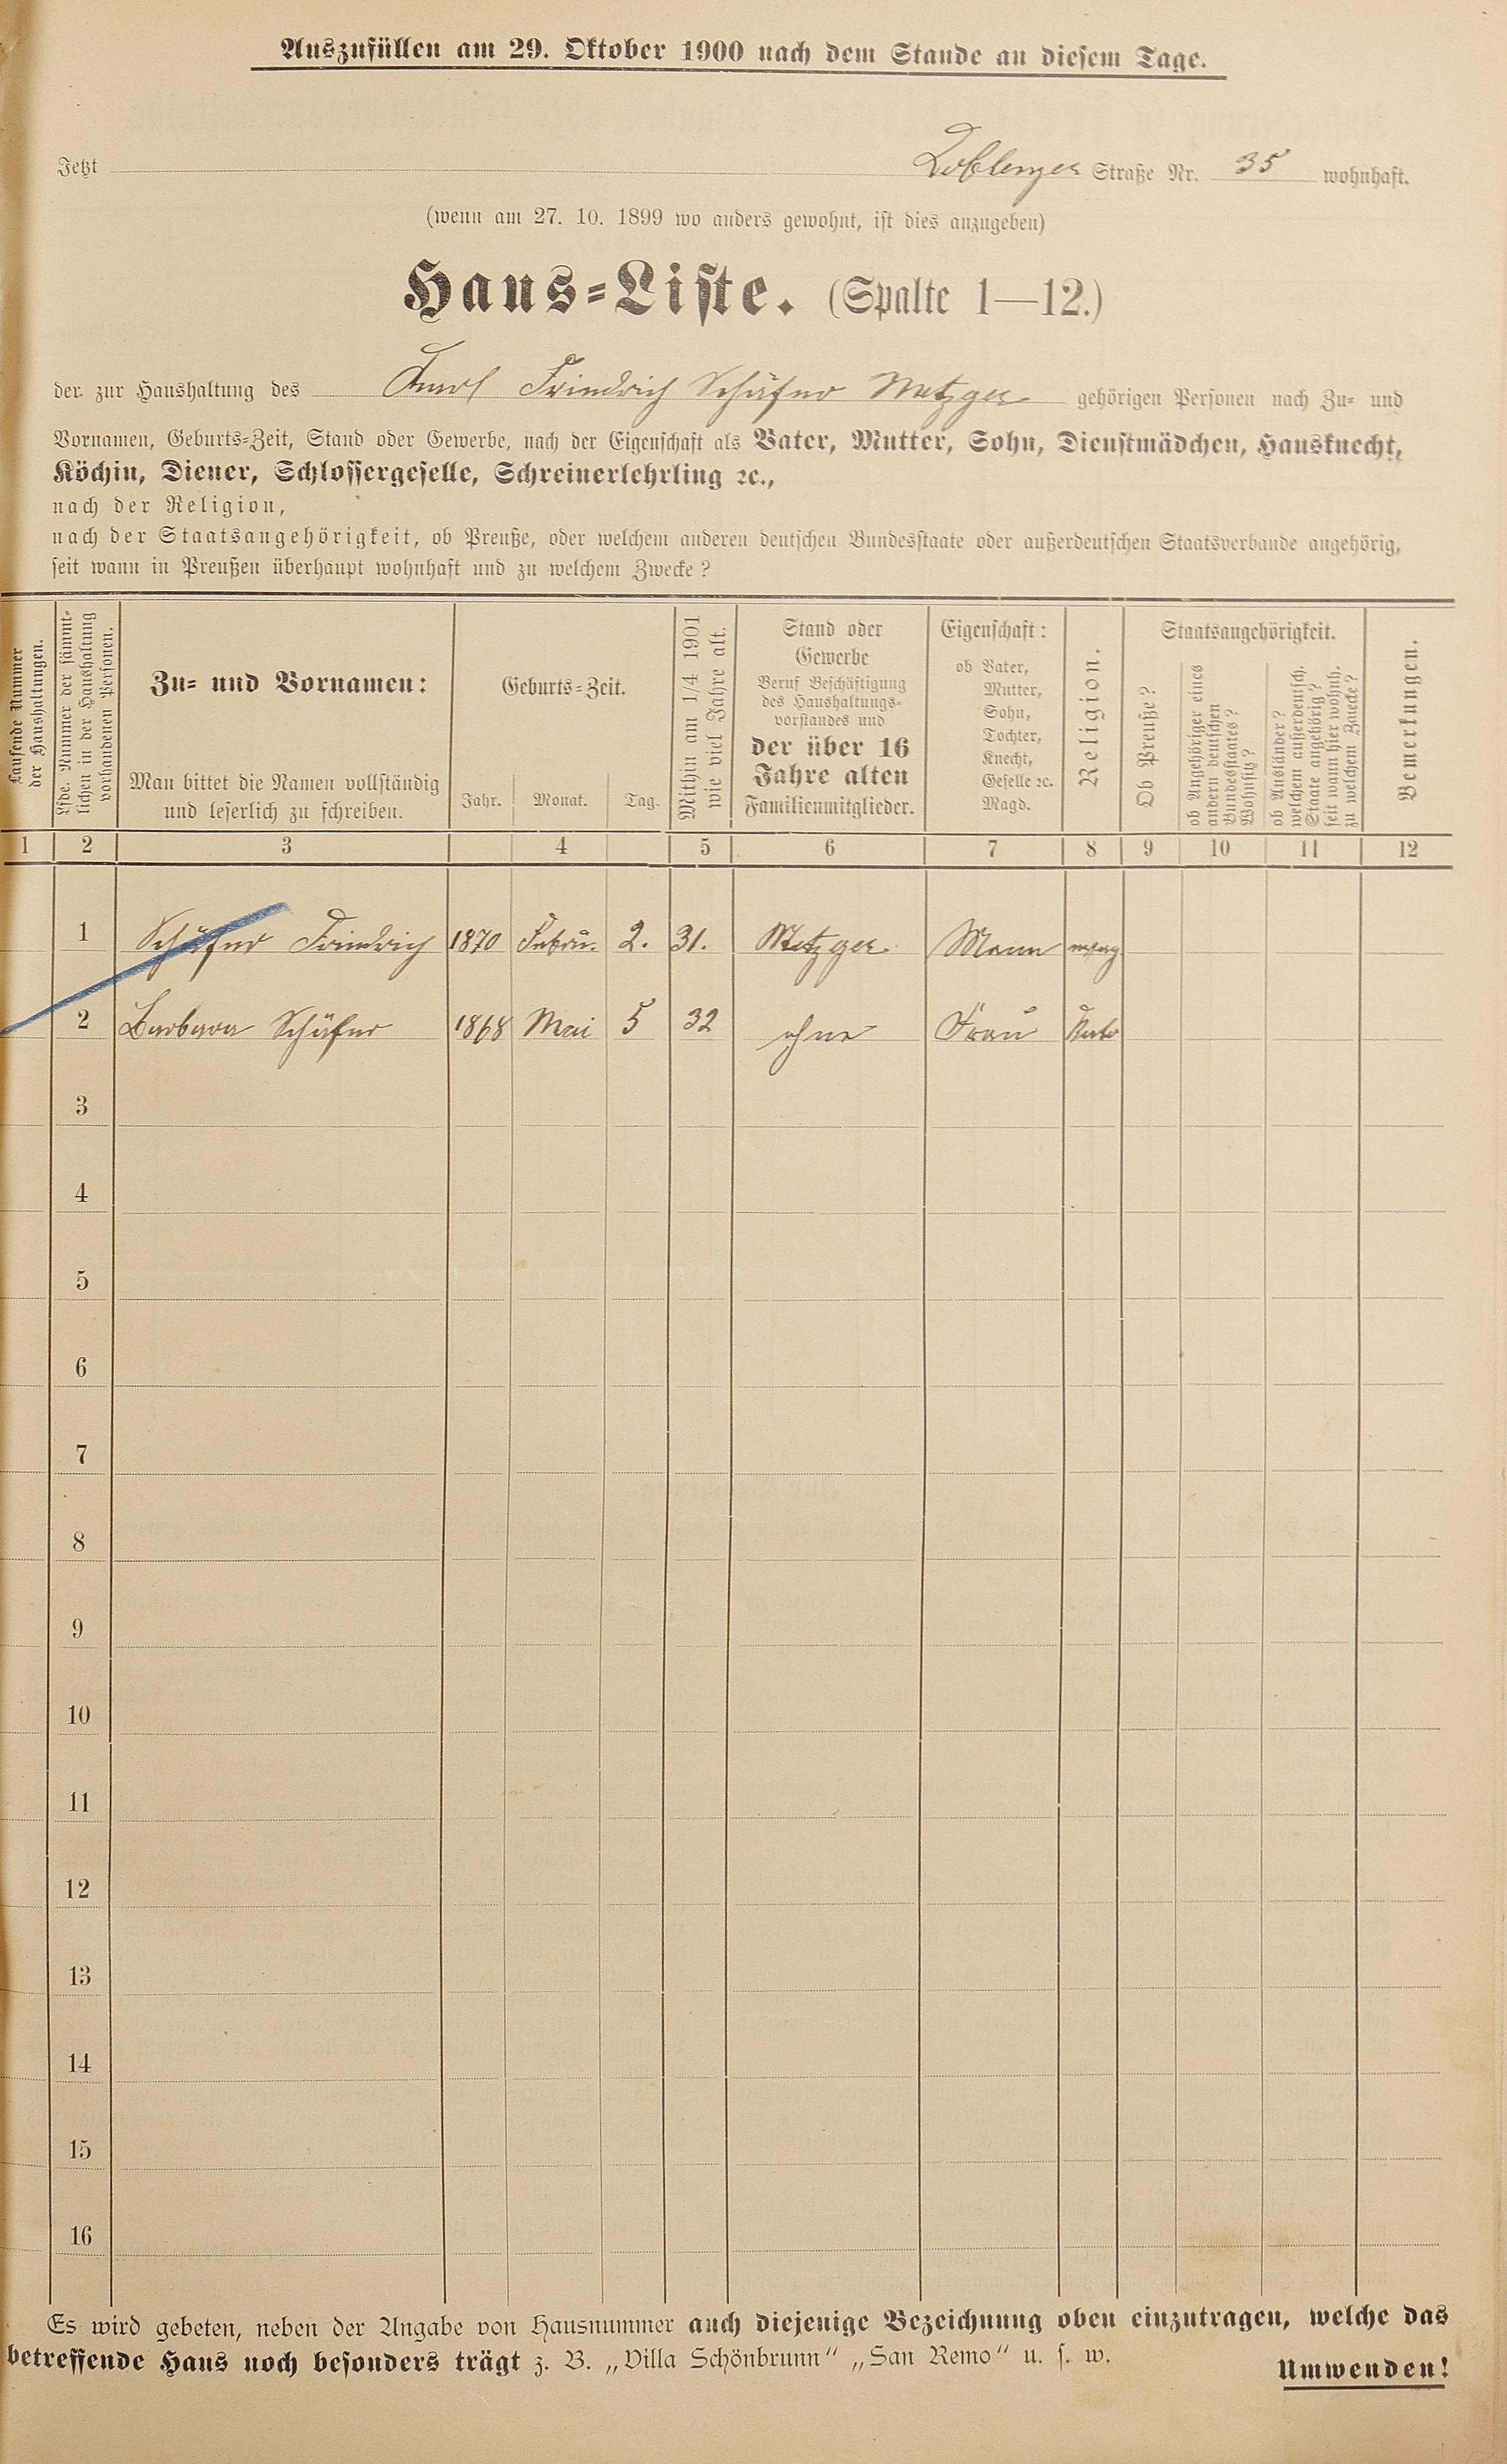 Auszufüllen am 29. Oktober 1900 nach dem Stande an diesem Tage.
Jetzt Koblenzer Straße Nr. 35 wohnhaft.
(wenn am 27. 10. 1899 wo anders gewohnt, ist dies anzugeben)
Haus-Liste. (Spalte 1—12.)
der zur Haushaltung des Karl Friedrich Schäfer Metzger gehörigen Personen nach Zu- und
Vornamen, Geburts-Zeit, Stand oder Gewerbe, nach der Eigenschaft als Vater, Mutter, Sohn, Dienstmädchen, Hausknecht,
Köchin, Diener, Schlossergeselle, Schreinerlehrling ꝛc.,
nach der Religion,
nach der Staatsangehörigkeit, ob Preuße, oder welchem anderen deutschen Bundesstaate oder außerdeutschen Staatsverbande angehörig,
seit wann in Preußen überhaupt wohnhaft und zu welchem Zwecke?
Laufende Nummer
der Haushaltungen.
Lfde. Nummer der sämmt-
lichen in der Haushaltung
vorhandenen Personen.
Zu- und Vornamen:
Man bittet die Namen vollständig
und leserlich zu schreiben.
Geburts-Zeit.
Jahr. Monat. Tag.
Mithin am 1/4 1901
wie viel Jahre alt.
Stand oder
Gewerbe
Beruf Beschäftigung
des Haushaltungs-
vorstandes und
der über 16
Jahre alten
Familienmitglieder.
Eigenschaft:
ob Vater,
Mutter,
Sohn,
Tochter,
Knecht,
Geselle ꝛc.
Magd.
Religion.
Staatsangehörigkeit.
Ob Preuße?
ob Angehöriger eines
andern deutschen
Bundesstaates?
Wohnsitz?
ob Ausländer?
welchem außerdeutsch.
Staate angehörig?
seit wann hier wohnh.
zu welchem Zwecke?
Bemerkungen.
1 2 3 4 5 6 7 8 9 10 11 12
1 Schäfer Friedrich 1870 Febru. 2. 31. Metzger Mann
2 Barbara Schäfer 1868 Mai 5 32 ohne Frau Kato
3
4
5
6
7
8
9
10
11
12
13
14
15
16
Es wird gebeten, neben der Angabe von Hausnummer auch diejenige Bezeichnung oben einzutragen, welche das
betreffende Haus noch besonders trägt z. B. „Villa Schönbrunn“ „San Remo“ u. s. w.
Umwenden!